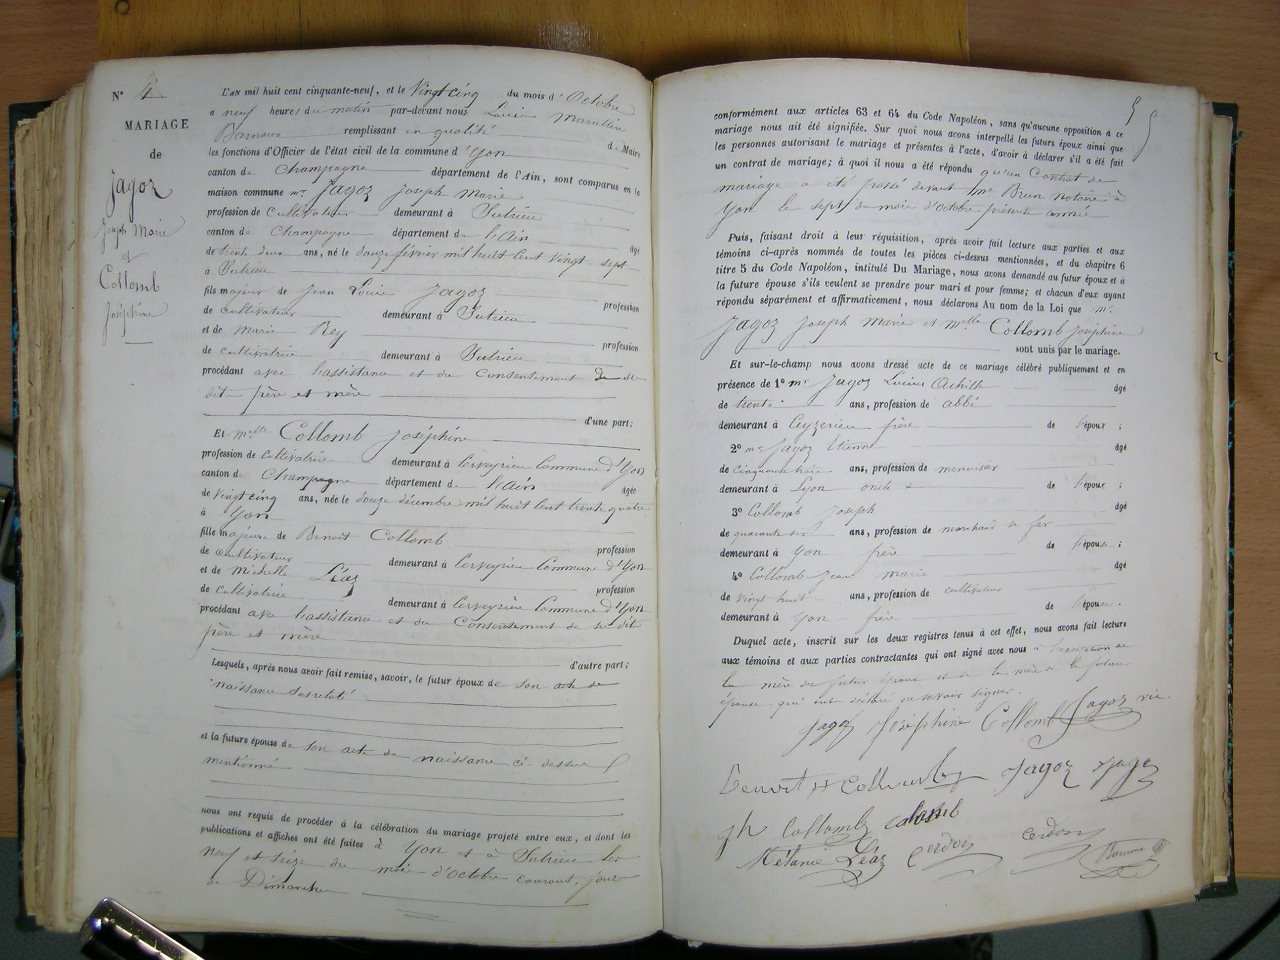 N° 4
MARIAGE
de
Jagoz
Joseph Marie
et
Collomb
Joséphine
L'AN mil huit cent cinquante-neuf, et le Vingt cinq du mois d'Octobre
a neuf heures du matin par-devant nous Lucien
remplissant en qualité de Maire
les fonctions d'Officier de l'état civil de la commune d'Yon
canton de Champagne département de l'Ain, sont comparus en la
maison commune mr Jagoz Joseph Marie
profession de cultivateur demeurant à Sutrieu
canton de Champagne département de l'Ain âgé
de trente deux ans, né le douze février mil huit cent vingt sept
à Sutrieu
fils majeur de Jean Louis Jagoz profession
de cultivateur demeurant à Sutrieu
et de Marie Rey profession
de cultivatrice demeurant à Sutrieu
procédant avec l'assistance et du Consentement de
dit père et mère
d'une part;
Et mlle Collomb Joséphine
profession de cultivatrice demeurant à Cerveyrieu Commune d'Yon
canton de Champagne département de l'Ain âgée
de vingt cinq ans, née le douze décembre mil huit cent trente quatre
à Yon
fille majeure de Benoit Collomb profession
de cultivateur demeurant à Cerveyrieu Commune d'Yon
et de Michelle Léaz profession
de cultivatrice demeurant à Cerveyrieu Commune d'Yon
procédant avec l'assistance et du Consentement de se dit
père et mère
d'autre part;
Lesquels, après nous avoir fait remise, savoir, le futur époux de son acte de
naissance
et la future épouse de son acte de naissance ci dessus
mentionné
nous ont requis de procéder à la célébration du mariage projeté entre eux, et dont les
publications et affiches ont été faites à Yon et à Sutrieu les
neuf et seize du mois d'octobre courant, jour
de Dimanche
55
conformément aux articles 63 et 64 du Code Napoléon, sans qu'aucune opposition à ce
mariage nous ait été signifiée. Sur quoi nous avons interpellé les futurs époux ainsi que
les personnes autorisant le mariage et présentes à l'acte, d'avoir à déclarer s'il a été fait
un contrat de mariage; à quoi il nous a été répondu qu'un Contrat de
mariage a été passé devant me Brun notaire à
Yon le sept du mois d'octobre présente année
Puis, faisant droit à leur réquisition, après avoir fait lecture aux parties et aux
témoins ci-après nommés de toutes les pièces ci-dessus mentionnées, et du chapitre 6
titre 5 du Code Napoléon, intitulé Du Mariage, nous avons demandé au futur époux et à
la future épouse s'ils veulent se prendre pour mari et pour femme; et chacun d'eux ayant
répondu séparément et affirmativement, nous déclarons Au nom de la Loi que mr
Jagoz Joseph Marie et mlle Collomb Joséphine
sont unis par le mariage.
Et sur-le-champ nous avons dressé acte de ce mariage célébré publiquement et en
présence de 1° mr Jagoz Lucien Achille âgé
de trente ans, profession de abbé
demeurant à Ceyzerieu frère de l'époux;
2° mr Jagoz Etienne âgé
de cinquante trois ans, profession de menuisier
demeurant à Lyon oncle de l'époux;
3° Collomb Joseph âgé
de quarante six ans, profession de marchand de fer
demeurant à Yon frère de l'épouse;
4° Collomb Jean marie âgé
de vingt huit ans, profession de cultivateur
demeurant à Yon frère de l'épouse.
Duquel acte, inscrit sur les deux registres tenus à cet effet, nous avons fait lecture
aux témoins et aux parties contractantes qui ont signé avec nous à l'exception de
la mère du futur époux et de la mère de la future
épouse qui ont déclaré ne savoir signer.
Jagoz Joséphine Collomb Jagoz
Benoit Collomb Jagoz Jagoz
jh Collomb Collomb
Mélanie Léaz Cerdon Cerdon